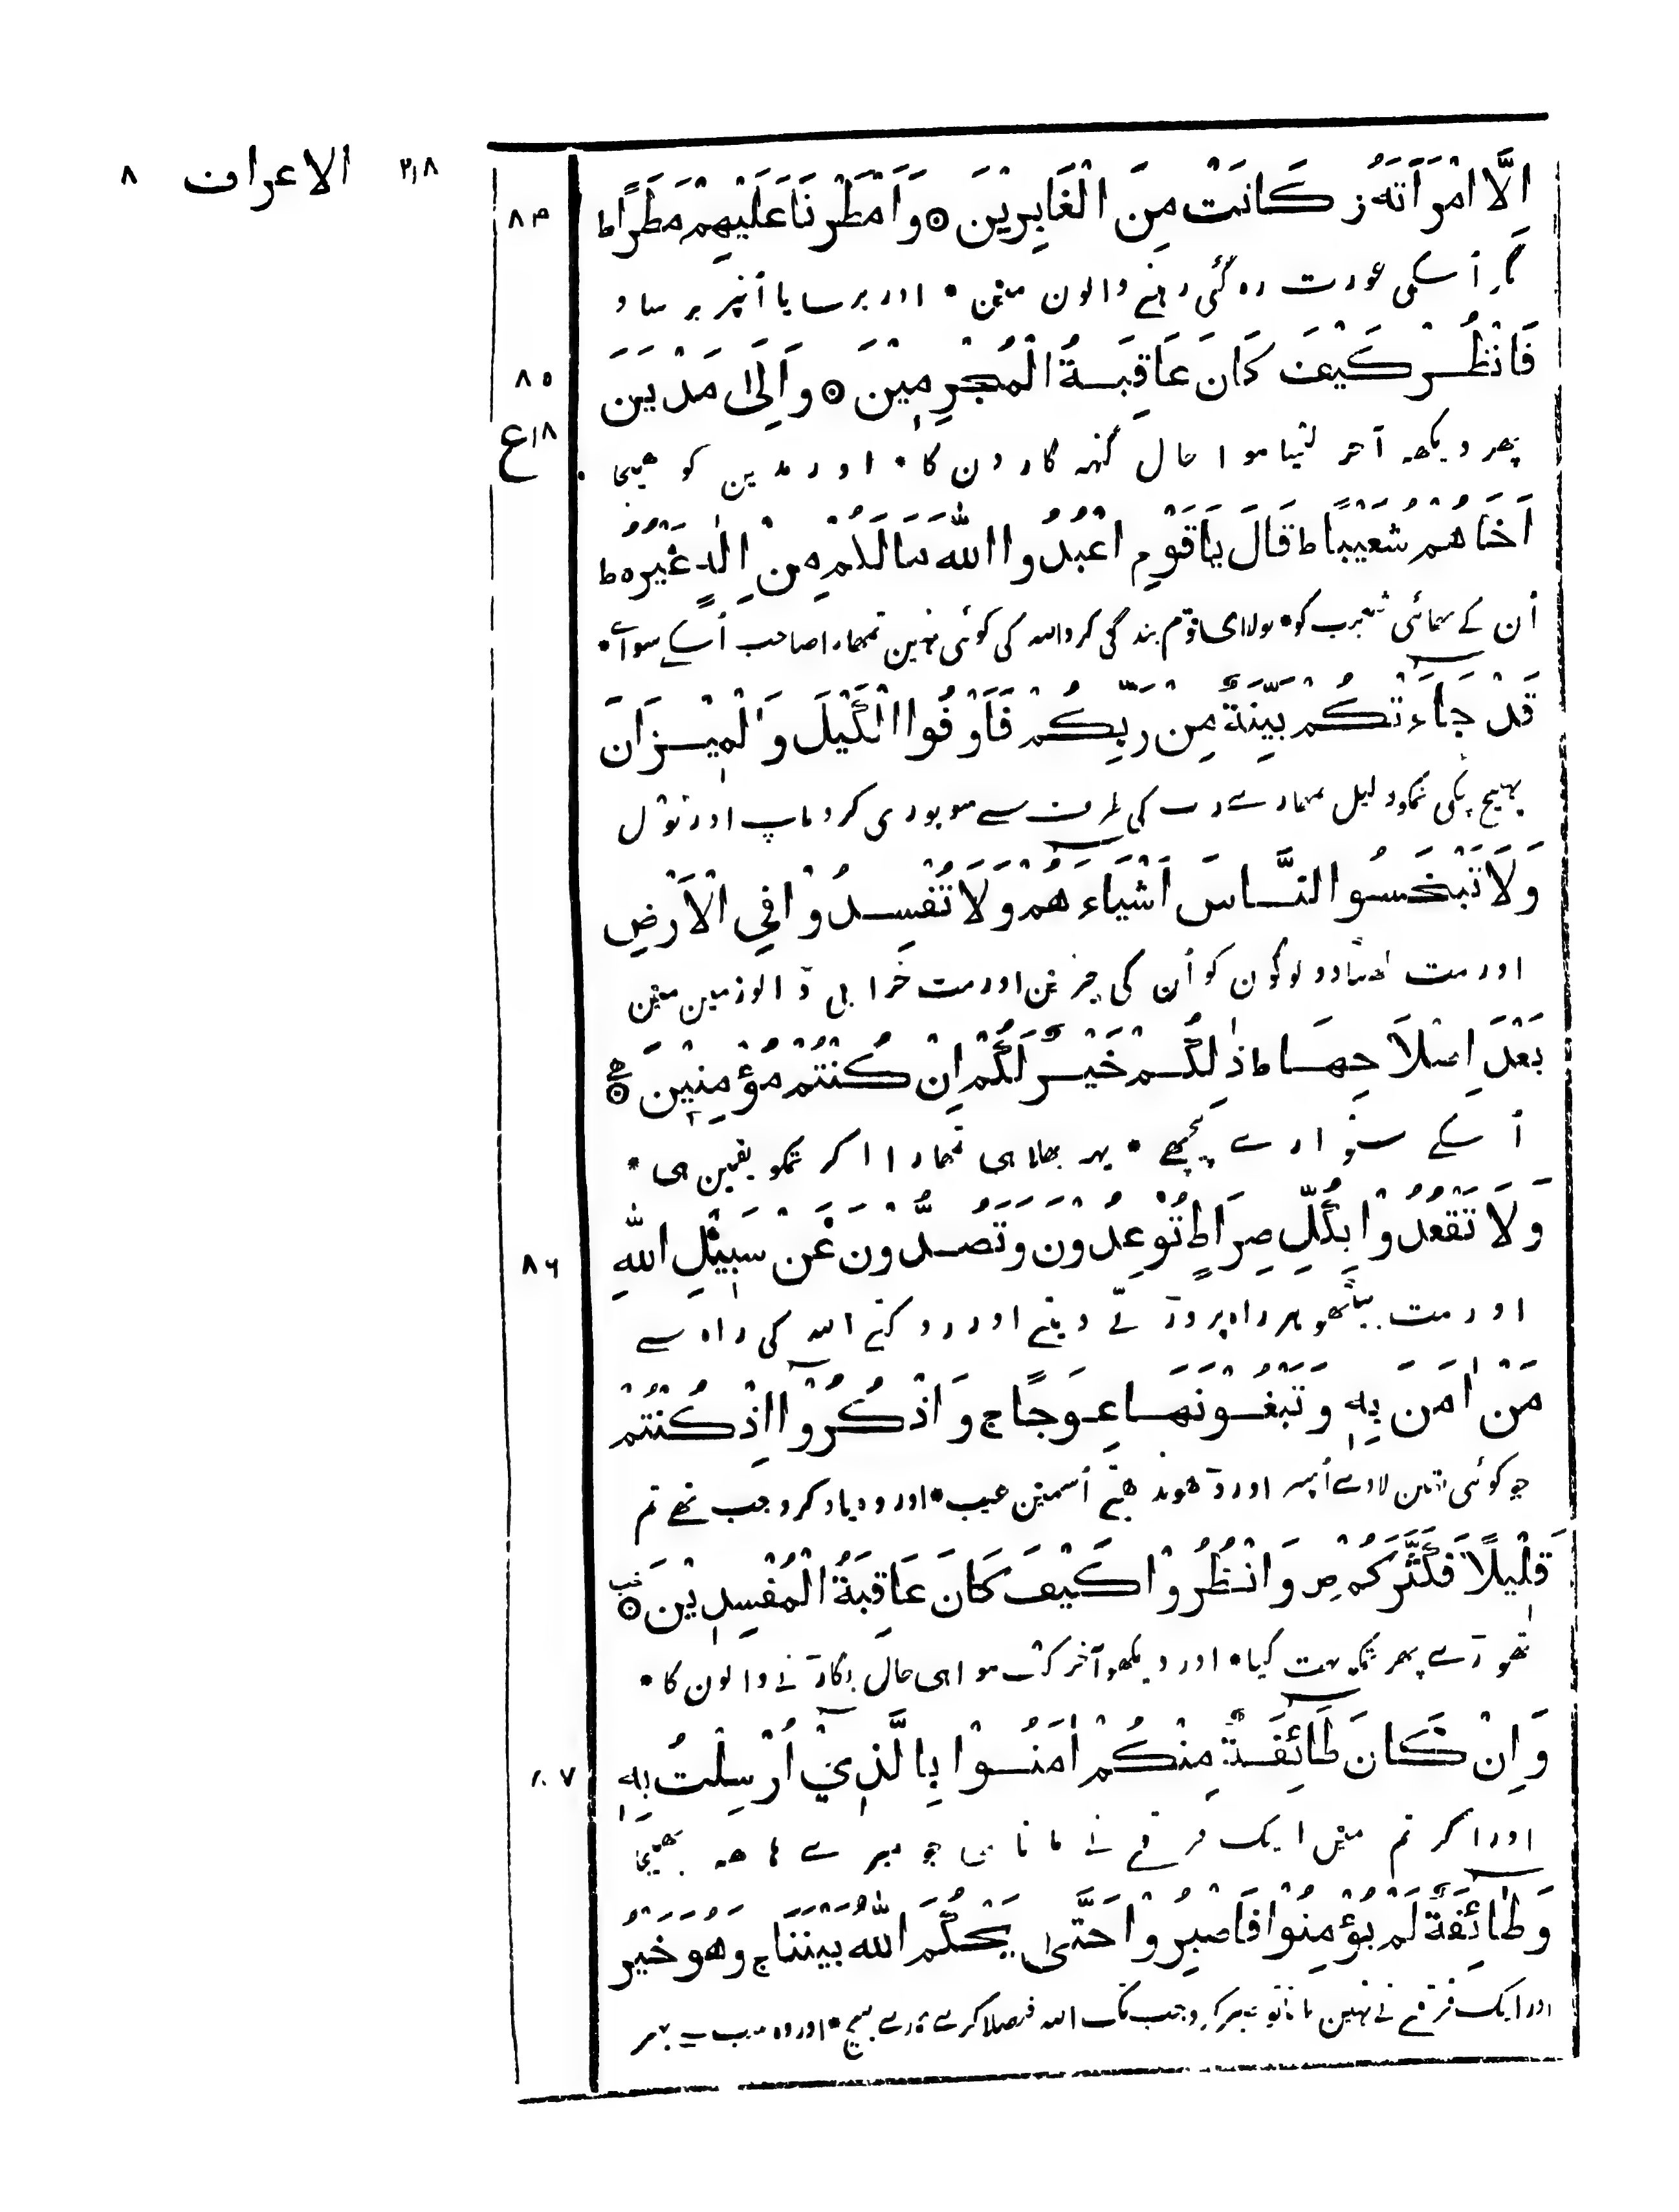 ۸ الاعراف ۲۱۸
اِلَّا امْرَاَتَهُ ز كَانَتْ مِنَ الْغَابِرِيْنَ ۞ وَاَمْطَرْنَا عَلَيْهِمْ مَطَرًا ط
۸۴
مگر اُسکی عورت رہ گئی رہنے والون مین * اور برسایا اُنپر برساو
فَانْظُرْ كَيْفَ كَانَ عَاقِبَةُ الْمُجْرِمِيْنَ ۞ وَاِلٰى مَدْيَنَ
۸۵
۱۸ع
پھر دیکھہ آخر کیسا ہوا حال گنہ گارون کا * اور مدین کو بھیجا
اَخَاهُمْ شُعَيْبًا ط قَالَ يَاقَوْمِ اعْبُدُوا اللّٰهَ مَا لَكُمْ مِنْ اِلٰهٍ غَيْرُهُ ط
اُن کے بھائی شعیب کو * بولا ای قوم بندگی کرو اللہ کی کوئی نہین تمھارا صاحب اُسکے سوائے *
قَدْ جَاءَتْكُمْ بَيِّنَةٌ مِنْ رَبِّكُمْ فَاَوْفُوا الْكَيْلَ وَالْمِيْزَانَ
پہنچ چکی تمکو دلیل تمھارے رب کی طرف سے سو پوری کرو ماپ اور تول
وَلَا تَبْخَسُوا النَّاسَ اَشْيَاءَهُمْ وَلَا تُفْسِدُوْا فِي الْاَرْضِ
اور مت گھٹادو لوگون کو اُن کی چیزین اور مت خرابی ڈالو زمین مین
بَعْدَ اِصْلَاحِهَا ط ذٰلِكُمْ خَيْرٌ لَكُمْ اِنْ كُنْتُمْ مُؤْمِنِيْنَ ۞
اُسکے سنوارے پیچھے * یہ بھلا ہی تمھارا اگر تمکو یقین ہی *
وَلَا تَقْعُدُوْا بِكُلِّ صِرَاطٍ تُوْعِدُوْنَ وَتَصُدُّوْنَ عَنْ سَبِيْلِ اللّٰهِ
۸۶
اور مت بیٹھو ہر راہ پر ڈر تے دینے اور روکنے اللہ کی راہ سے
مَنْ اٰمَنَ بِهٖ وَتَبْغُوْنَهَا عِوَجًا ج وَاذْكُرُوْا اِذْ كُنْتُمْ
جو کوئی یقین لاوے اُسپر اور ڈھونڈھتے اُسمین عیب * اور وہ یاد کرو جب تھے تم
قَلِيْلًا فَكَثَّرَكُمْ ص وَانْظُرُوْا كَيْفَ كَانَ عَاقِبَةُ الْمُفْسِدِيْنَ ۞
تھوڑے پھر تمکو بہت کیا * اور دیکھو آخر کیسا ہوا ہی حال بگاڑنے والون کا *
وَاِنْ كَانَ طَائِفَةٌ مِنْكُمْ اٰمَنُوْا بِالَّذِيْ اُرْسِلْتُ بِهٖ
۸۷
اور اگر تم مین ایک فرقے نے مانا ہی جو میرے ہاتھہ بھیجا
وَطَائِفَةٌ لَمْ يُؤْمِنُوْا فَاصْبِرُوْا حَتّٰى يَحْكُمَ اللّٰهُ بَيْنَنَا ج وَهُوَ خَيْرُ
اور ایک فرقے نے نہین مانا تو صبر کرو جب تک اللہ فیصلا کرے ہمارے بیچ * اور وہ سب سے بہتر